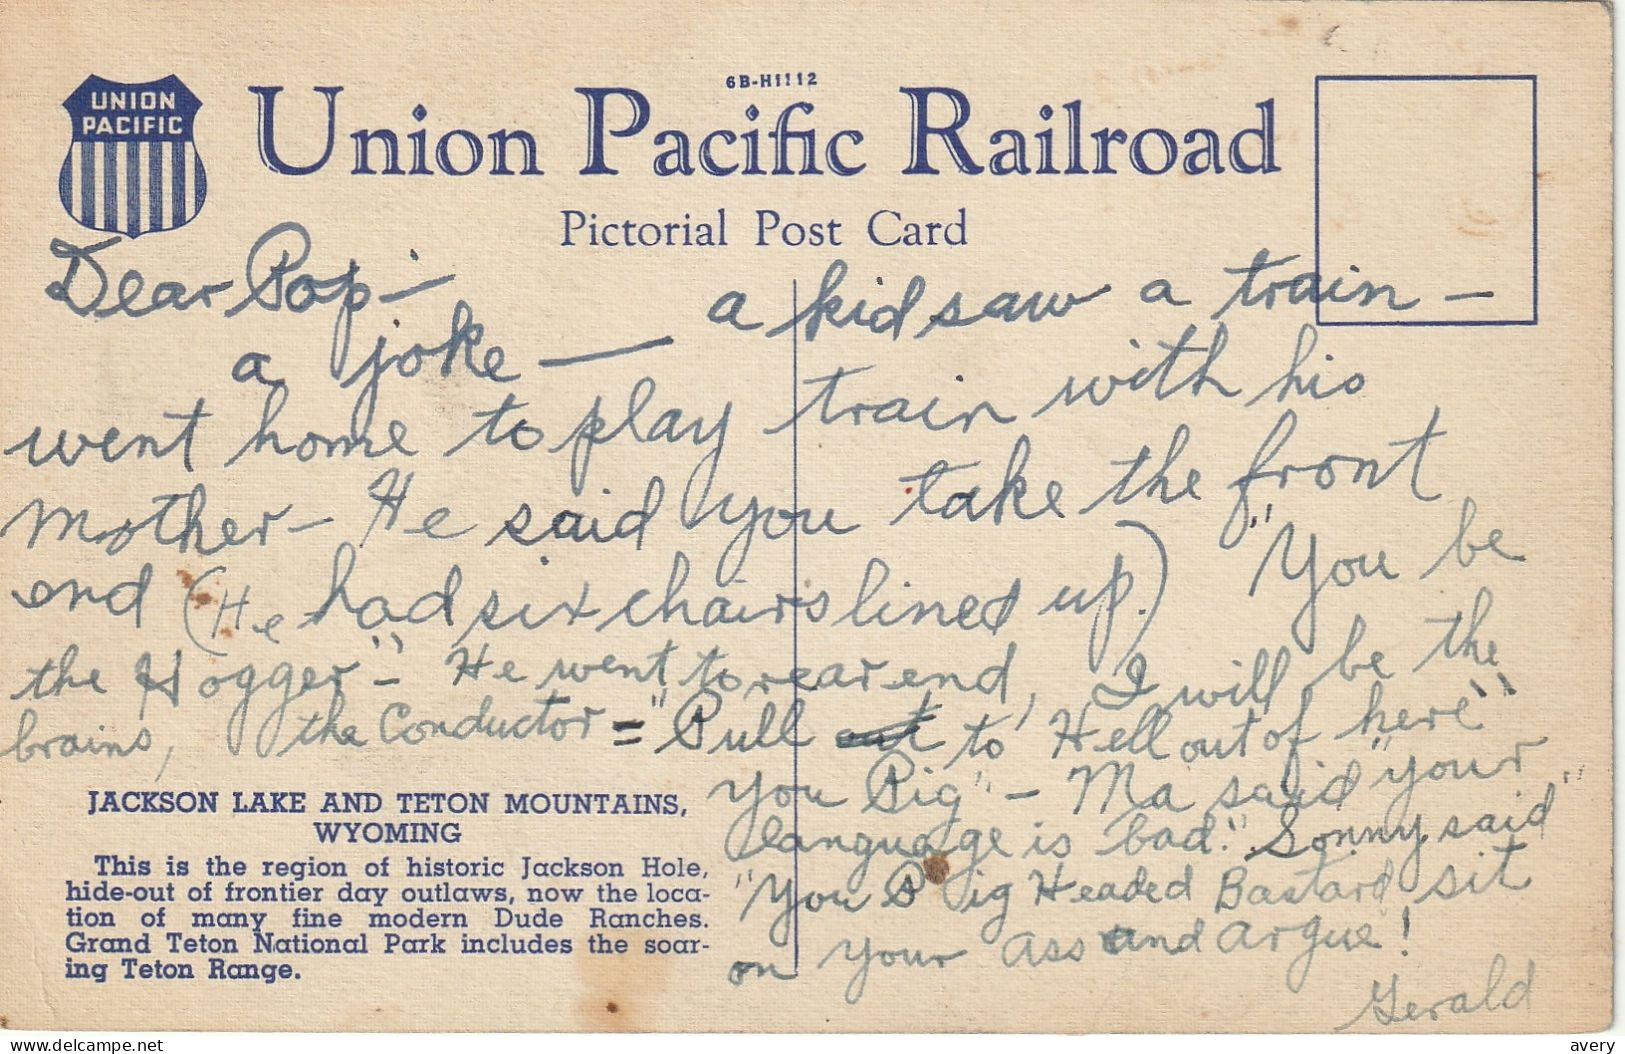 6B-H1112
UNION
PACIFIC
Union Pacific Railroad
Pictorial Post Card
Dear Pop —
a joke — a kid saw a train —
went home to play train with his
mother — He said you take the front
end (He had six chairs lined up.) "You be
the Hogger" — He went to rear end, I will be the
brains, the Conductor = "Pull to Hell out of here"
you Pig" — Ma said "your
language is bad." Sonny said "
"You Pig Headed Bastard sit
on your ass and argue"!
Gerald
JACKSON LAKE AND TETON MOUNTAINS,
WYOMING
This is the region of historic Jackson Hole,
hide-out of frontier day outlaws, now the loca-
tion of many fine modern Dude Ranches.
Grand Teton National Park includes the soar-
ing Teton Range.
www.delcampe.net
avery